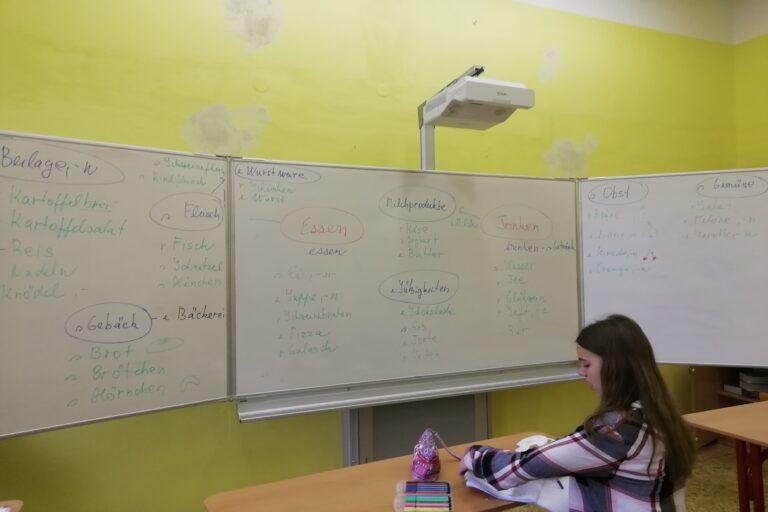 Beilage, -n
Kartoffelbrei
Kartoffelsalat
Reis
Nudeln
Knödel, -
s Schweinefleisch
s Rindfleisch
s Fleisch
r Fisch
s Schnitzel
s Hänchen
s Gebäck
e Bäckerei
s Brot
s Brötchen
s Hörnchen
e Wurstware
r Schinken
e Wurst
Essen
essen
s Ei, -er
e Suppe, -n
r Schweinebraten
e Pizza
r Gulasch
Milchprodukte
e Milch
r Käse
r Joghurt
e Butter
e Süßigkeiten
e Schokolade
s Eis
e Torte
Trinken
trinken
s Wasser
r Tee
r Glühwein
r Saft, -e
s Bier
s Obst
r Apfel
e Banane, -n
e Orange, -n
s Gemüse
r Salat
e Melone, -n
e Karotte, -n